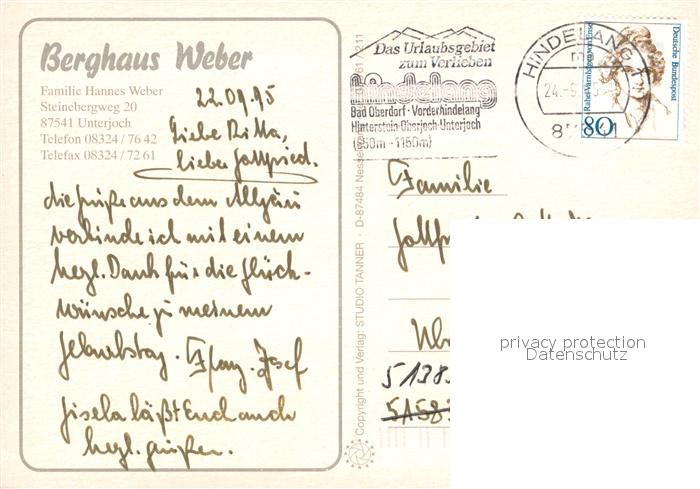 Berghaus Weber
Familie Hannes Weber
Steinebergweg 20
87541 Unterjoch
Telefon 08324 / 76 42
Telefax 08324 / 72 61
22.09.95
Liebe Ritta,
lieber Gottfried.
die Grüße aus dem Allgäu
verbinde ich mit einem
herzl. Dank für die Glück-
wünsche zu meinem
Geburtstag. Franz-Josef
Gisela läßt Euch auch
herzl. grüßen.
Copyright und Verlag: STUDIO TANNER · D-87484 Nesselwang
Das Urlaubsgebiet
zum Verlieben
hindelang
Bad Oberdorf · Vorderhindelang
Hinterstein · Oberjoch · Unterjoch
(850m - 1150m)
HINDELANG 1
24.-9.
Deutsche Bundespost
Rahel Varnhagen von Ense
80
Familie
51385
privacy protection
Datenschutz